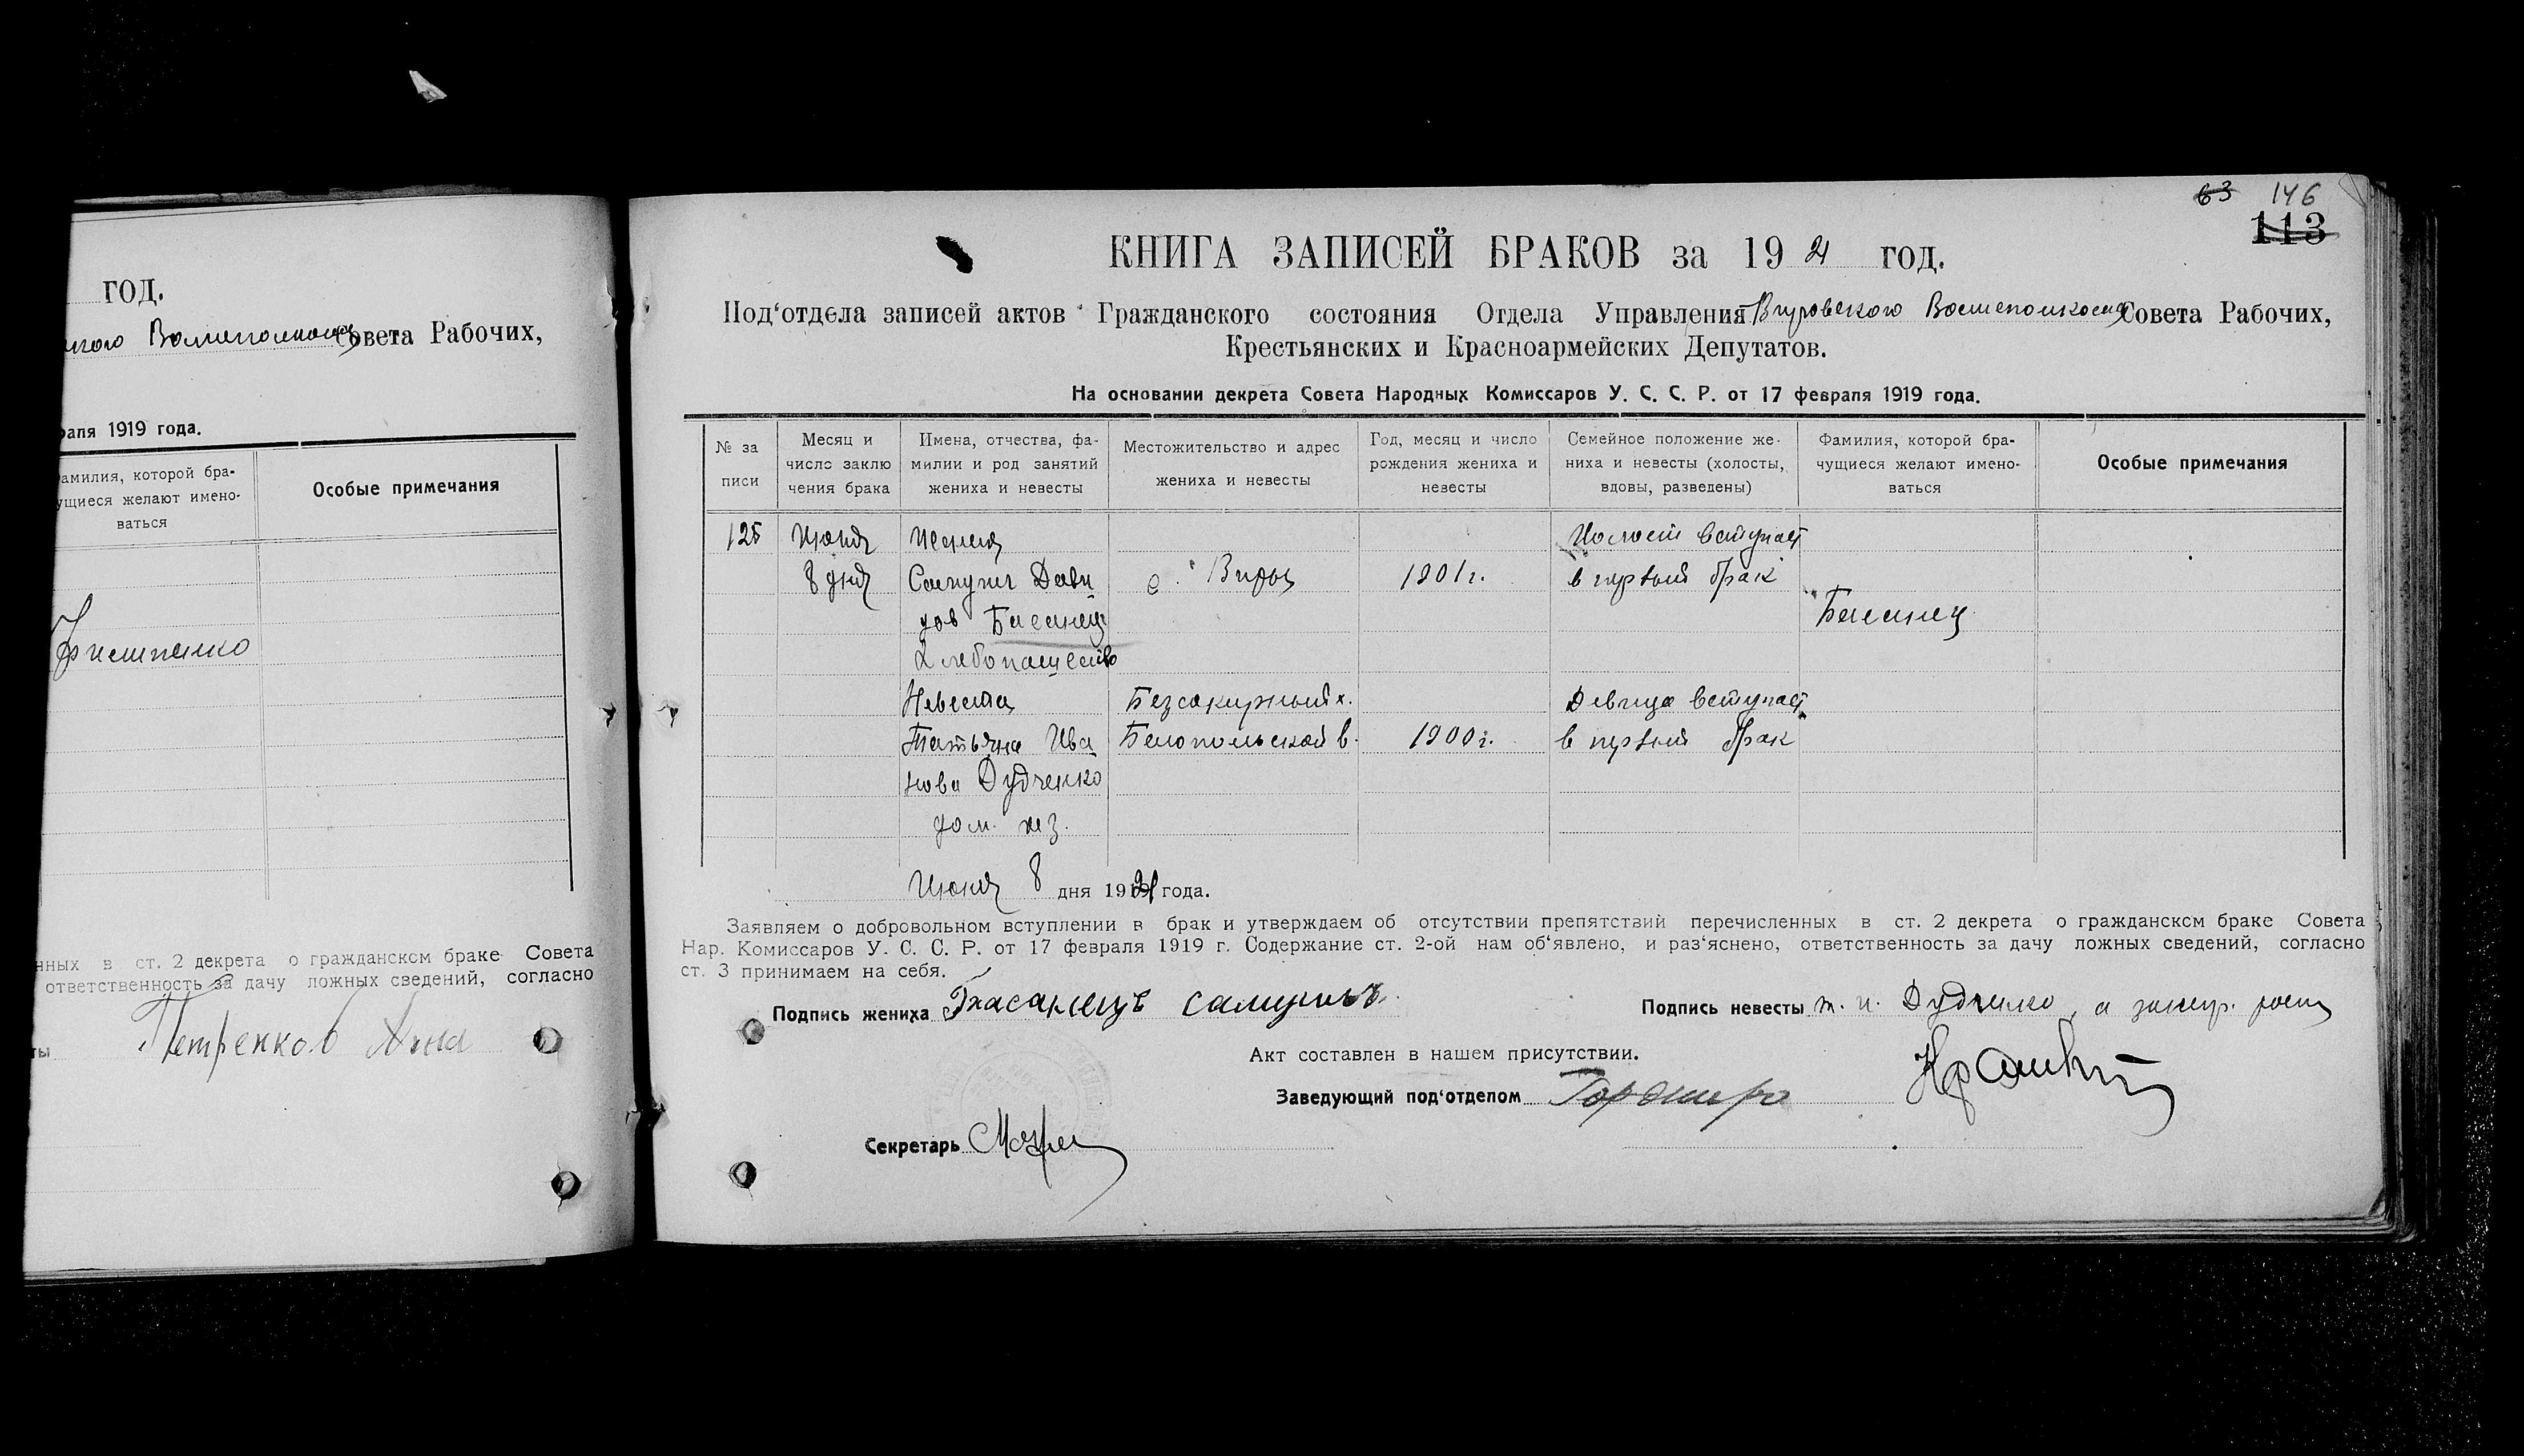 год.
Совета Рабочих,
раля 1919 года.
Фамилия, которой бра-
чущиеся желают имено-
ваться
Особые примечания
нных в ст. 2 декрета о гражданском браке Совета
ответственность за дачу ложных сведений, согласно
Петренково Анна
63 146
113
КНИГА ЗАПИСЕЙ БРАКОВ за 1921 год.
Под‘отдела записей актов Гражданского состояния Отдела Управления Вировского Совета Рабочих,
Крестьянских и Красноармейских Депутатов.
На основании декрета Совета Народных Комиссаров У. С. С. Р. от 17 февраля 1919 года.
№ за
писи
Месяц и
число заклю
чения брака
Имена, отчества, фа-
милии и род занятий
жениха и невесты
Местожительство и адрес
жениха и невесты
Год, месяц и число
рождения жениха и
невесты
Семейное положение же-
ниха и невесты (холосты,
вдовы, разведены)
Фамилия, которой бра-
чущиеся желают имено-
ваться
Особые примечания
125 Июня Холост вступает
8 дня Дави с. Виры 1901 г. в первый брак
дов
Хлебопашество
Невеста х. Девица вступает
Татьяна Ива Белопольской в. 1900 г. в первый брак
нова Дудченко
дом. хоз.
Июня 8 дня 1921 года.
Заявляем о добровольном вступлении в брак и утверждаем об отсутствии препятствий перечисленных в ст. 2 декрета о гражданском браке Совета
Нар. Комиссаров У. С. С. Р. от 17 февраля 1919 г. Содержание ст. 2-ой нам об‘явлено, и раз‘яснено, ответственность за дачу ложных сведений, согласно
ст. 3 принимаем на себя.
Подпись жениха
Подпись невесты Т. И. Дудченко, а
Акт составлен в нашем присутствии.
Заведующий под‘отделом
Секретарь